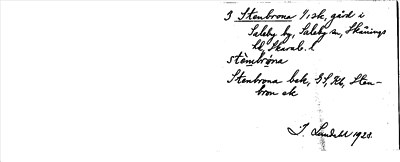 3 Stenbrona 1/1 sk, gård i
Saleby by, Saleby sn, Skånings
hd, Skarab. l
stèmbróna
Stenbrona bek, GS, Kb, Sten-
bron ek
I. Lundahl 1928.